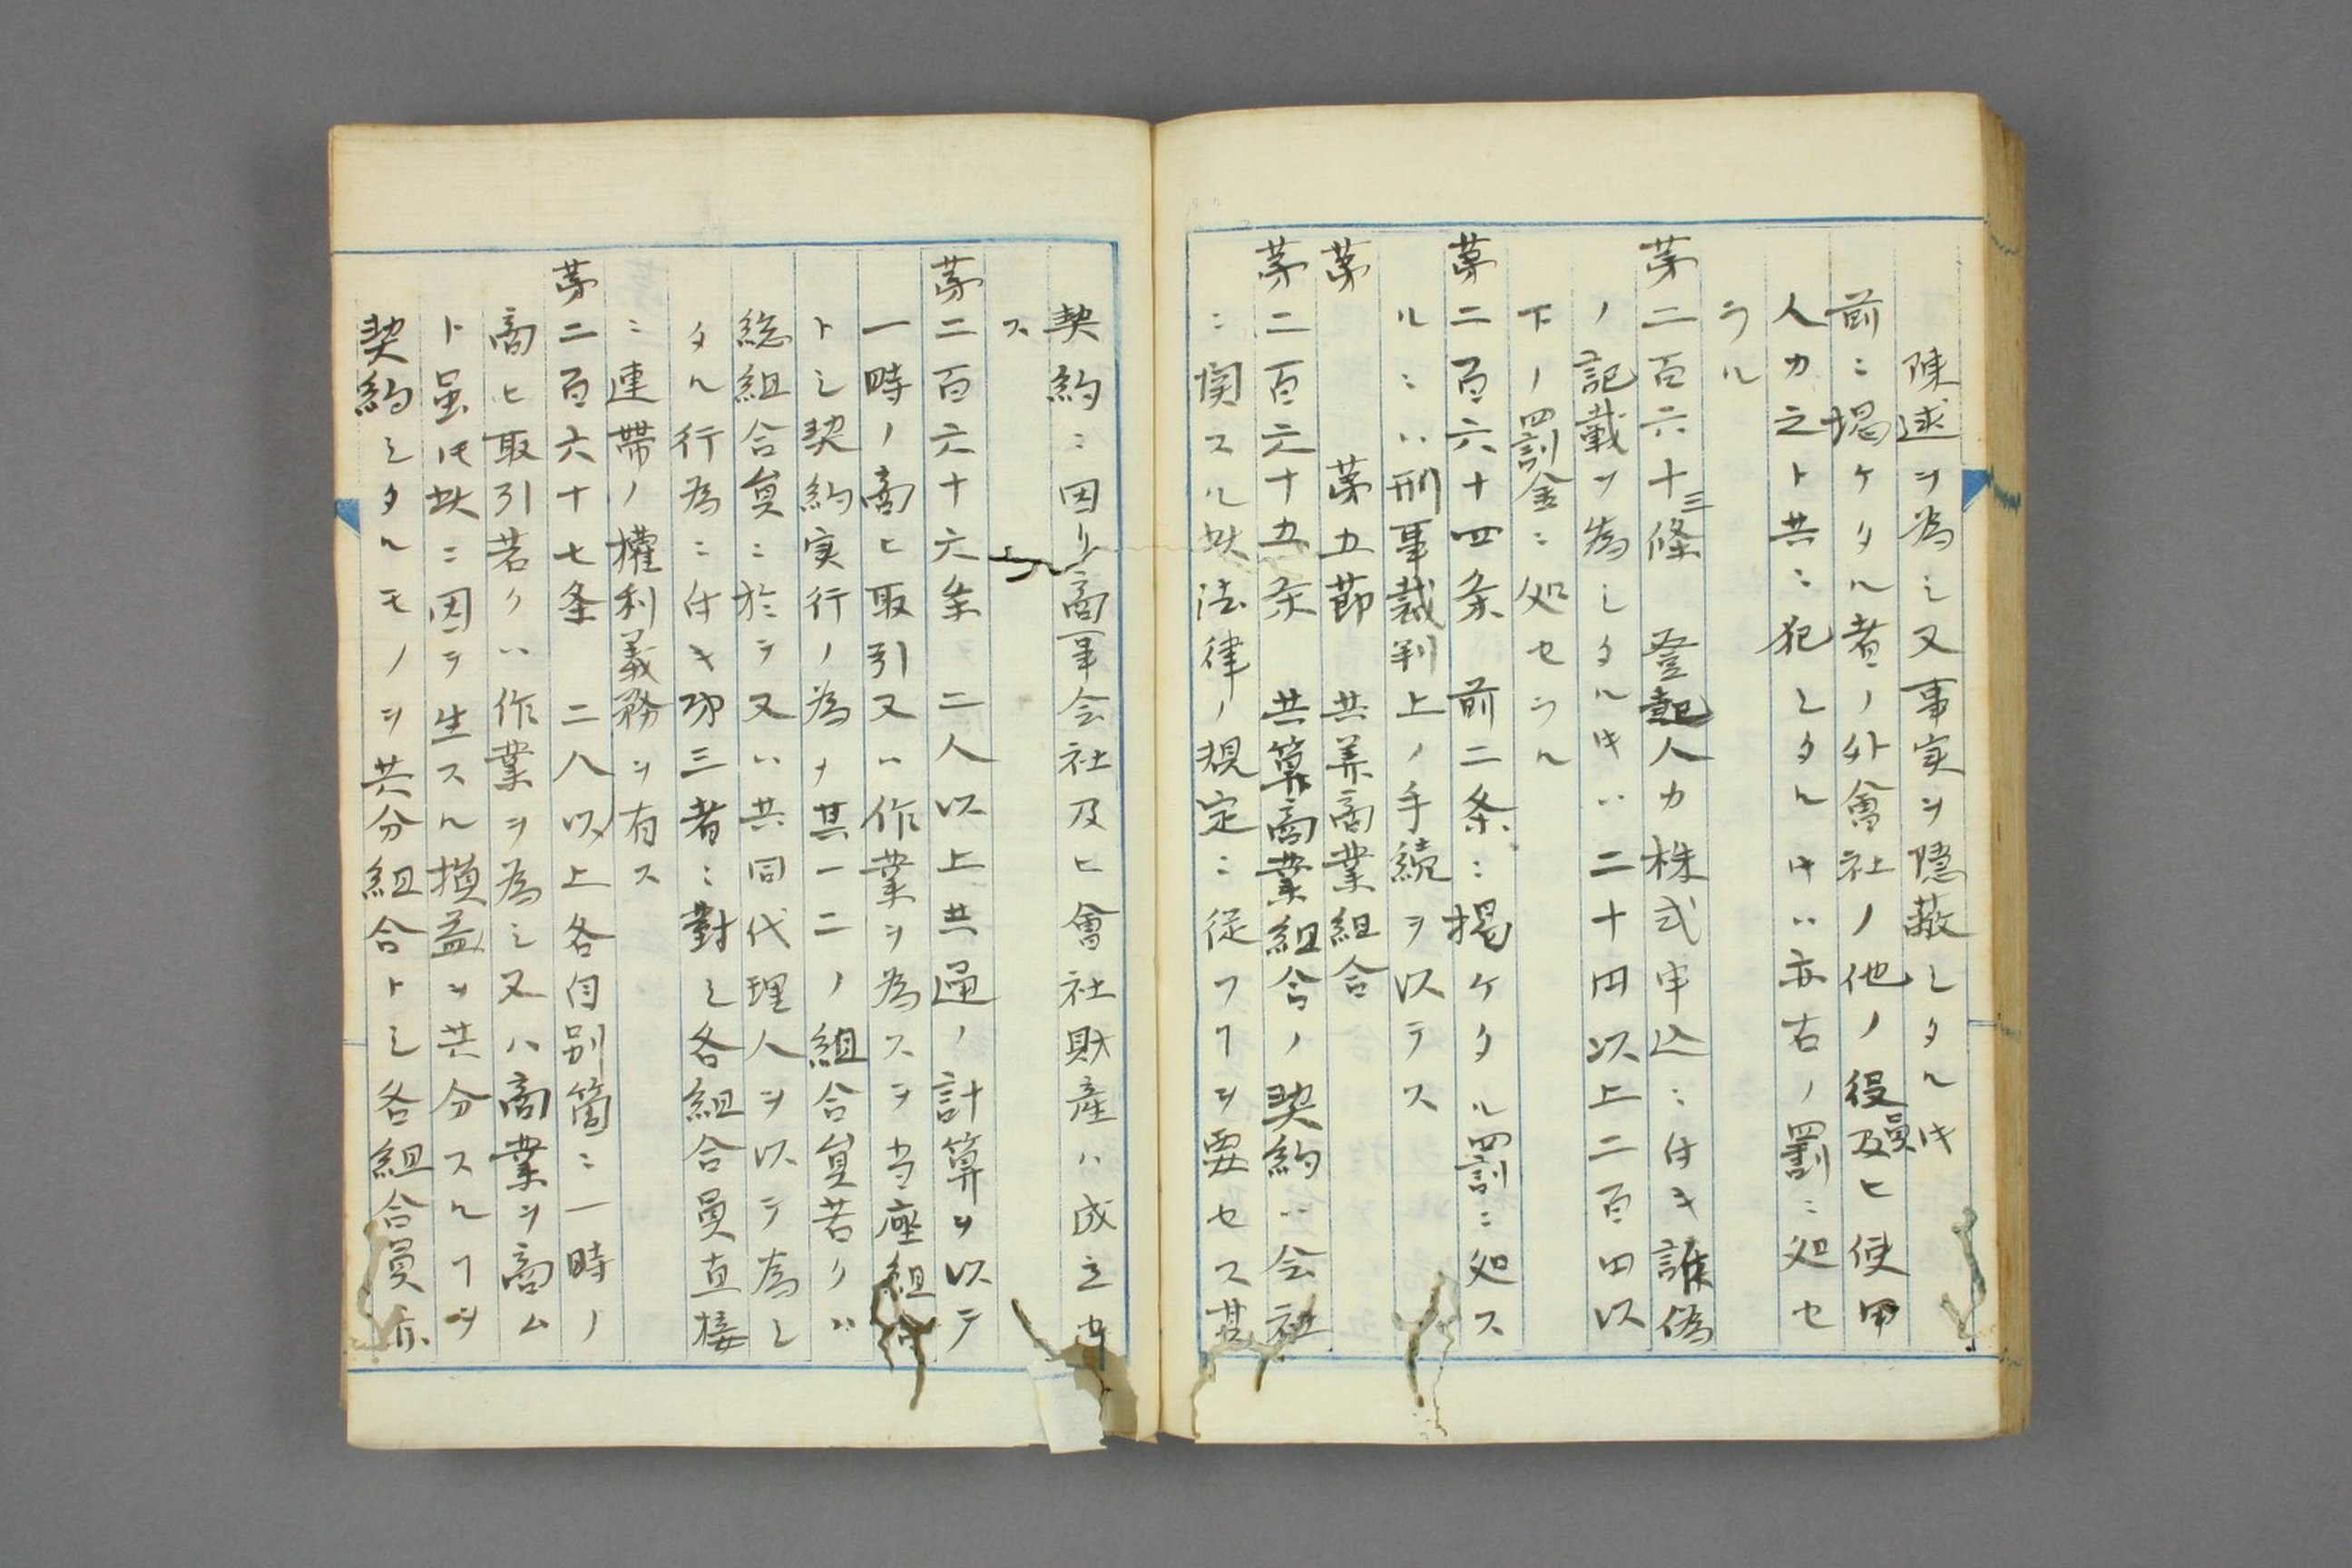 陳述ヲ為シ又事実ヲ隠蔽シタルキ
前ニ掲ケタル者ノ外會社ノ他ノ役員及ヒ使用
人カ之ト共ニ犯シタルキハ亦右ノ罰ニ処セ
ラル
茅二百六十三條 登起人カ株式申込ニ付キ詐偽
ノ記載ヲ為シタルキハ二十円以上二百円以
下ノ罰金ニ処セラル
茅二百六十四条 前二条ニ掲ケタル罰ニ処ス
ルニハ刑事裁判上ノ手続ヲ以テス
茅 茅五節 共算商業組合
茅二百六十五条 共算商業組合ノ契約ハ会社
ニ関スル此法律ノ規定ニ従フヿヲ要セス其
契約ニ因リ商事会社及ヒ會社財産ハ成立セ
ス
茅二百六十六条 二人以上共通ノ計算ヲ以テ
一時ノ商ヒ取引又ハ作業ヲ為スヲ当座組合
トシ契約実行ノ為メ其一二ノ組合員若クハ
総組合員ニ於テ又ハ共同代理人ヲ以テ為シ
タル行為ニ付キ茅三者ニ對シ各組合員直接
ニ連帯ノ權利義務ヲ有ス
茅二百六十七条 二人以上各自別箇ニ一時ノ
商ヒ取引若クハ作業ヲ為シ又ハ商業ヲ商ム
ト虽𪜈此ニ因テ生スル損益ヲ共分スルヿヲ
契約シタルモノヲ共分組合トシ各組合員亦